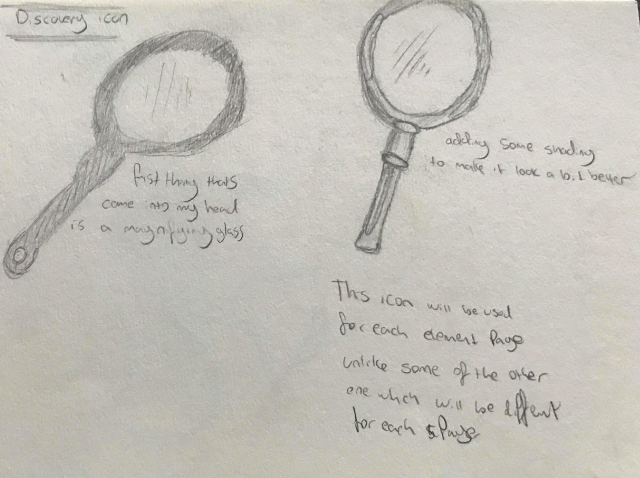 Discovery icon
first thing thats
come into my head
is a magnifying glass
adding some shading
to make it look a bit better
This icon will be used
for each element Page
unlike some of the other
one which will be different
for each Page